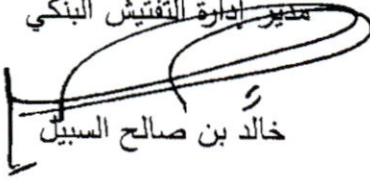 مدير إدارة التفتيش البنكي
خالد بن صالح السبيل